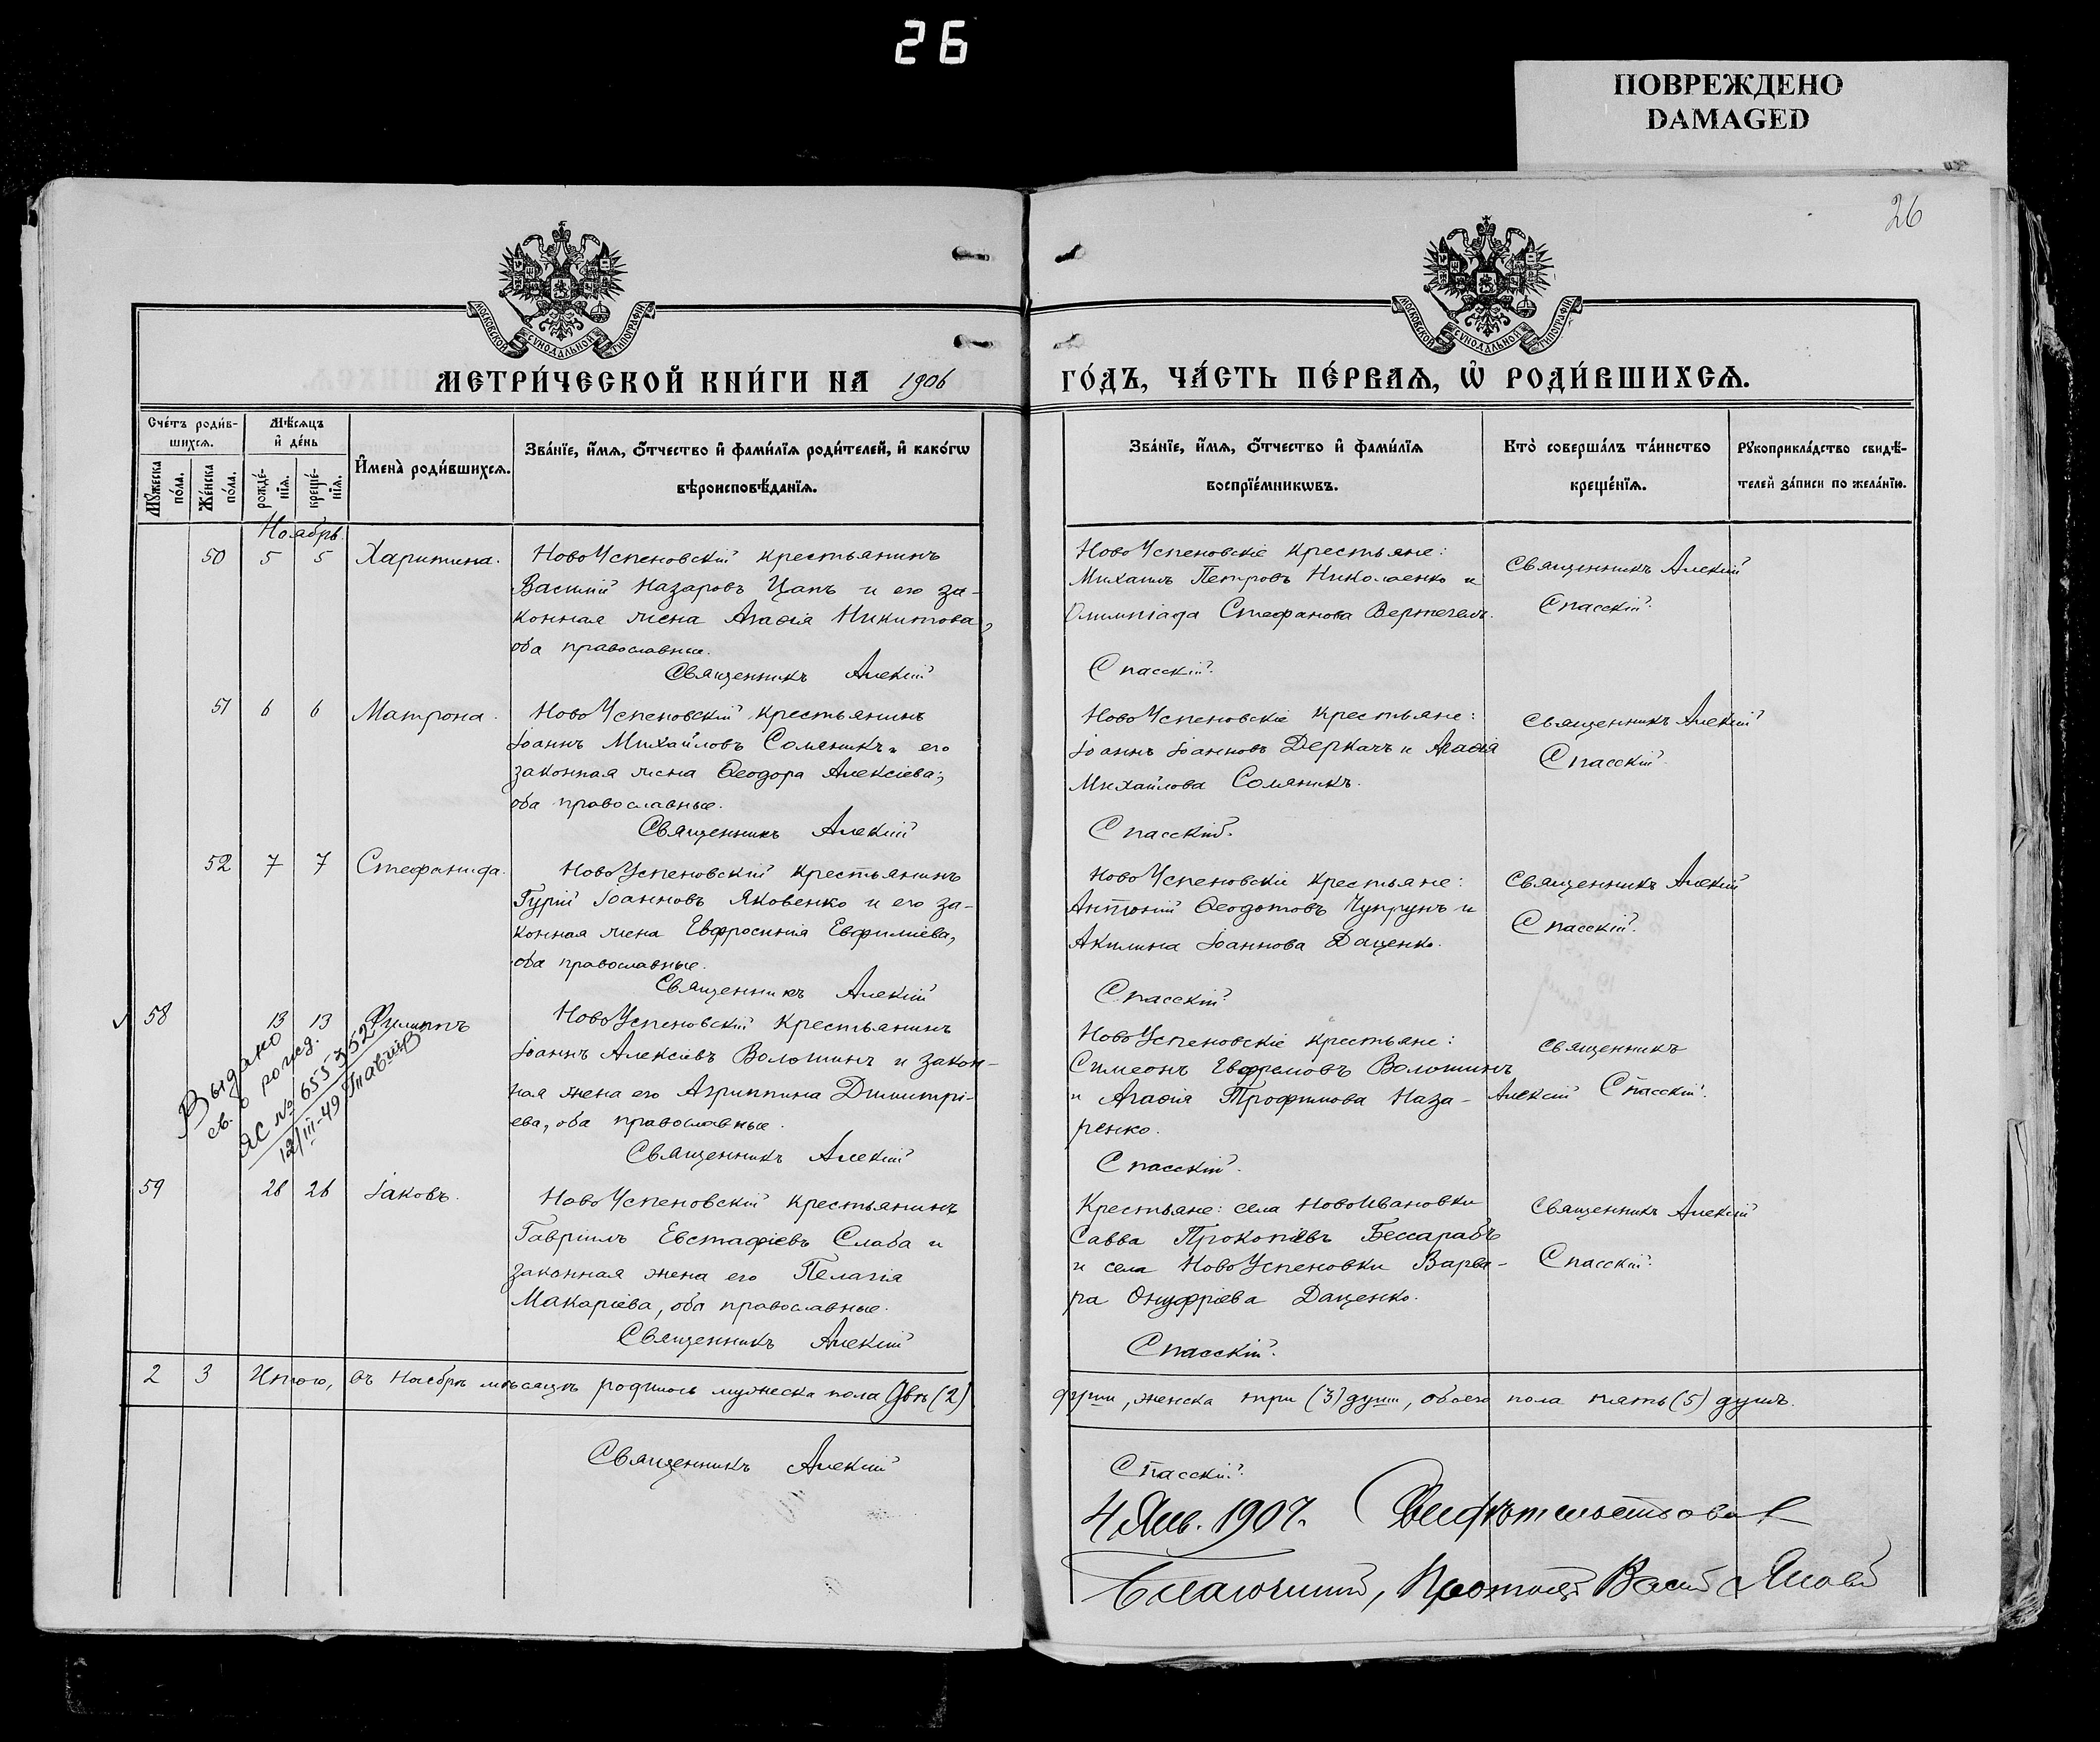 26
ПОВРЕЖДЕНО
DAMAGED
26
МОСКОВСКОЙ СѴНОДАЛЬНОЙ ТИПОГРАФІИ
МОСКОВСКОЙ СѴНОДАЛЬНОЙ ТИПОГРАФІИ
МЕТРИ́ЧЕСКОЙ КНИ́ГИ НА 1906
ГО́ДЪ, ЧА́СТЬ ПЕ́РВАѦ, Ѡ҆ РОДИ́ВШИХСѦ.
Сче́тъ роди́в-
шихсѧ.
Мꙋ́жеска по́ла.
Же́нска по́ла.
Мѣ́сѧцъ
и҆ де́нь
рожде́-
нїѧ.
креще́-
нїѧ.
И҆мена̀ роди́вшихсѧ.
Зва́нїе, и҆́мѧ, ѻ҆́тчество и҆ фами́лїѧ роди́телей, и҆ како́гѡ
вѣроисповѣ́данїѧ.
Зва́нїе, и҆́мѧ, ѻ҆́тчество и҆ фами́лїѧ
воспрїе́мникѡвъ.
Кто̀ соверша́лъ та́инство
креще́нїѧ.
Рꙋкоприкла́дство свидѣ́-
телей за́писи по жела́нїю.
Ноябрь.
50 5 5 Харитина. НовоУспеновскій крестьянинъ
Василій Назаровъ Цапъ и его за-
конная жена Агаѳія Никитова,
оба православные.
Священникъ Алексій
НовоУспеновскіе крестьяне:
Михаилъ Петровъ Николаенко и
Олимпіада Стефанова Вертегелъ.
Спасскій.
Священникъ Алексій
Спасскій.
51 6 6 Матрона. НовоУспеновскій крестьянинъ
Іоаннъ Михайловъ Соляникъ и его
законная жена Ѳеодора Алексіева,
оба православные.
Священникъ Алексій
НовоУспеновскіе крестьяне:
Іоаннъ Іоанновъ Деркачъ и Агаѳія
Михайлова Соляникъ.
Спасскій.
Священникъ Алексій
Спасскій.
52 7 7 Стефанида. НовоУспеновскій крестьянинъ
Гурій Іоанновъ Яковенко и его за-
конная жена Евфросинія Евфиміева,
оба православные.
Священникъ Алексій
НовоУспеновскіе крестьяне:
Антоній Ѳеодотовъ Чупрунъ и
Акилина Іоаннова Даценко.
Спасскій.
Священникъ Алексій
Спасскій.
58 13 13 Филиппъ НовоУспеновскій крестьянинъ
Іоаннъ Алексіевъ Волошинъ и закон-
ная жена его Агриппина Димитрі-
ева, оба православные.
Священникъ Алексій
Выдано
св. о рожд.
ЯС № 6553352
12/III-49
НовоУспеновскіе крестьяне:
Симеонъ Евфремовъ Волошинъ
и Агаѳія Трофимова Наза-
ренко.
Спасскій.
Священникъ
Алексій Спасскій.
59 26 26 Іаковъ. НовоУспеновскій крестьянинъ
Гавріилъ Евстафіевъ Слаба и
законная жена его Пелагія
Макаріева, оба православные.
Священникъ Алексій
Крестьяне: села НовоИвановки
Савва Прокопіевъ Бессарабъ
и села НовоУспеновки Варва-
ра Онуфріева Даценко.
Спасскій.
Священникъ Алексій
Спасскій.
2 3 Итого, въ Ноябрѣ мѣсяцѣ родилось мужеска пола двѣ (2)
души, женска три (3) души, обоего пола пять (5) душъ.
Священникъ Алексій
Спасскій.
4 Янв. 1907. Свидѣтельствовал
Благочинный, Протоіер